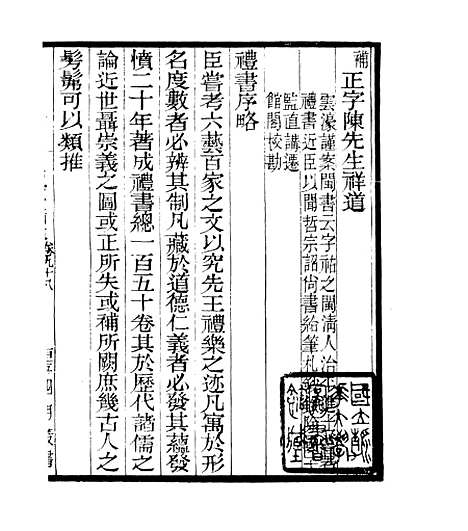 補
正字陳先生祥道
雲濠謹案閩書云字祐之閩淸人治
禮書近臣以聞哲宗詔尙書給筆札
監直講遷
館閣校勘
禮書序略
臣嘗考六藝百家之文以究先王禮樂之迹凡寓於形
名度數者必辨其制凡藏於道德仁義者必發其蘊發
憤二十年著成禮書總一百五十卷其於歷代諸儒之
論近世聶崇義之圖或正所失或補所闕庶幾古人之
髣髴可以類推